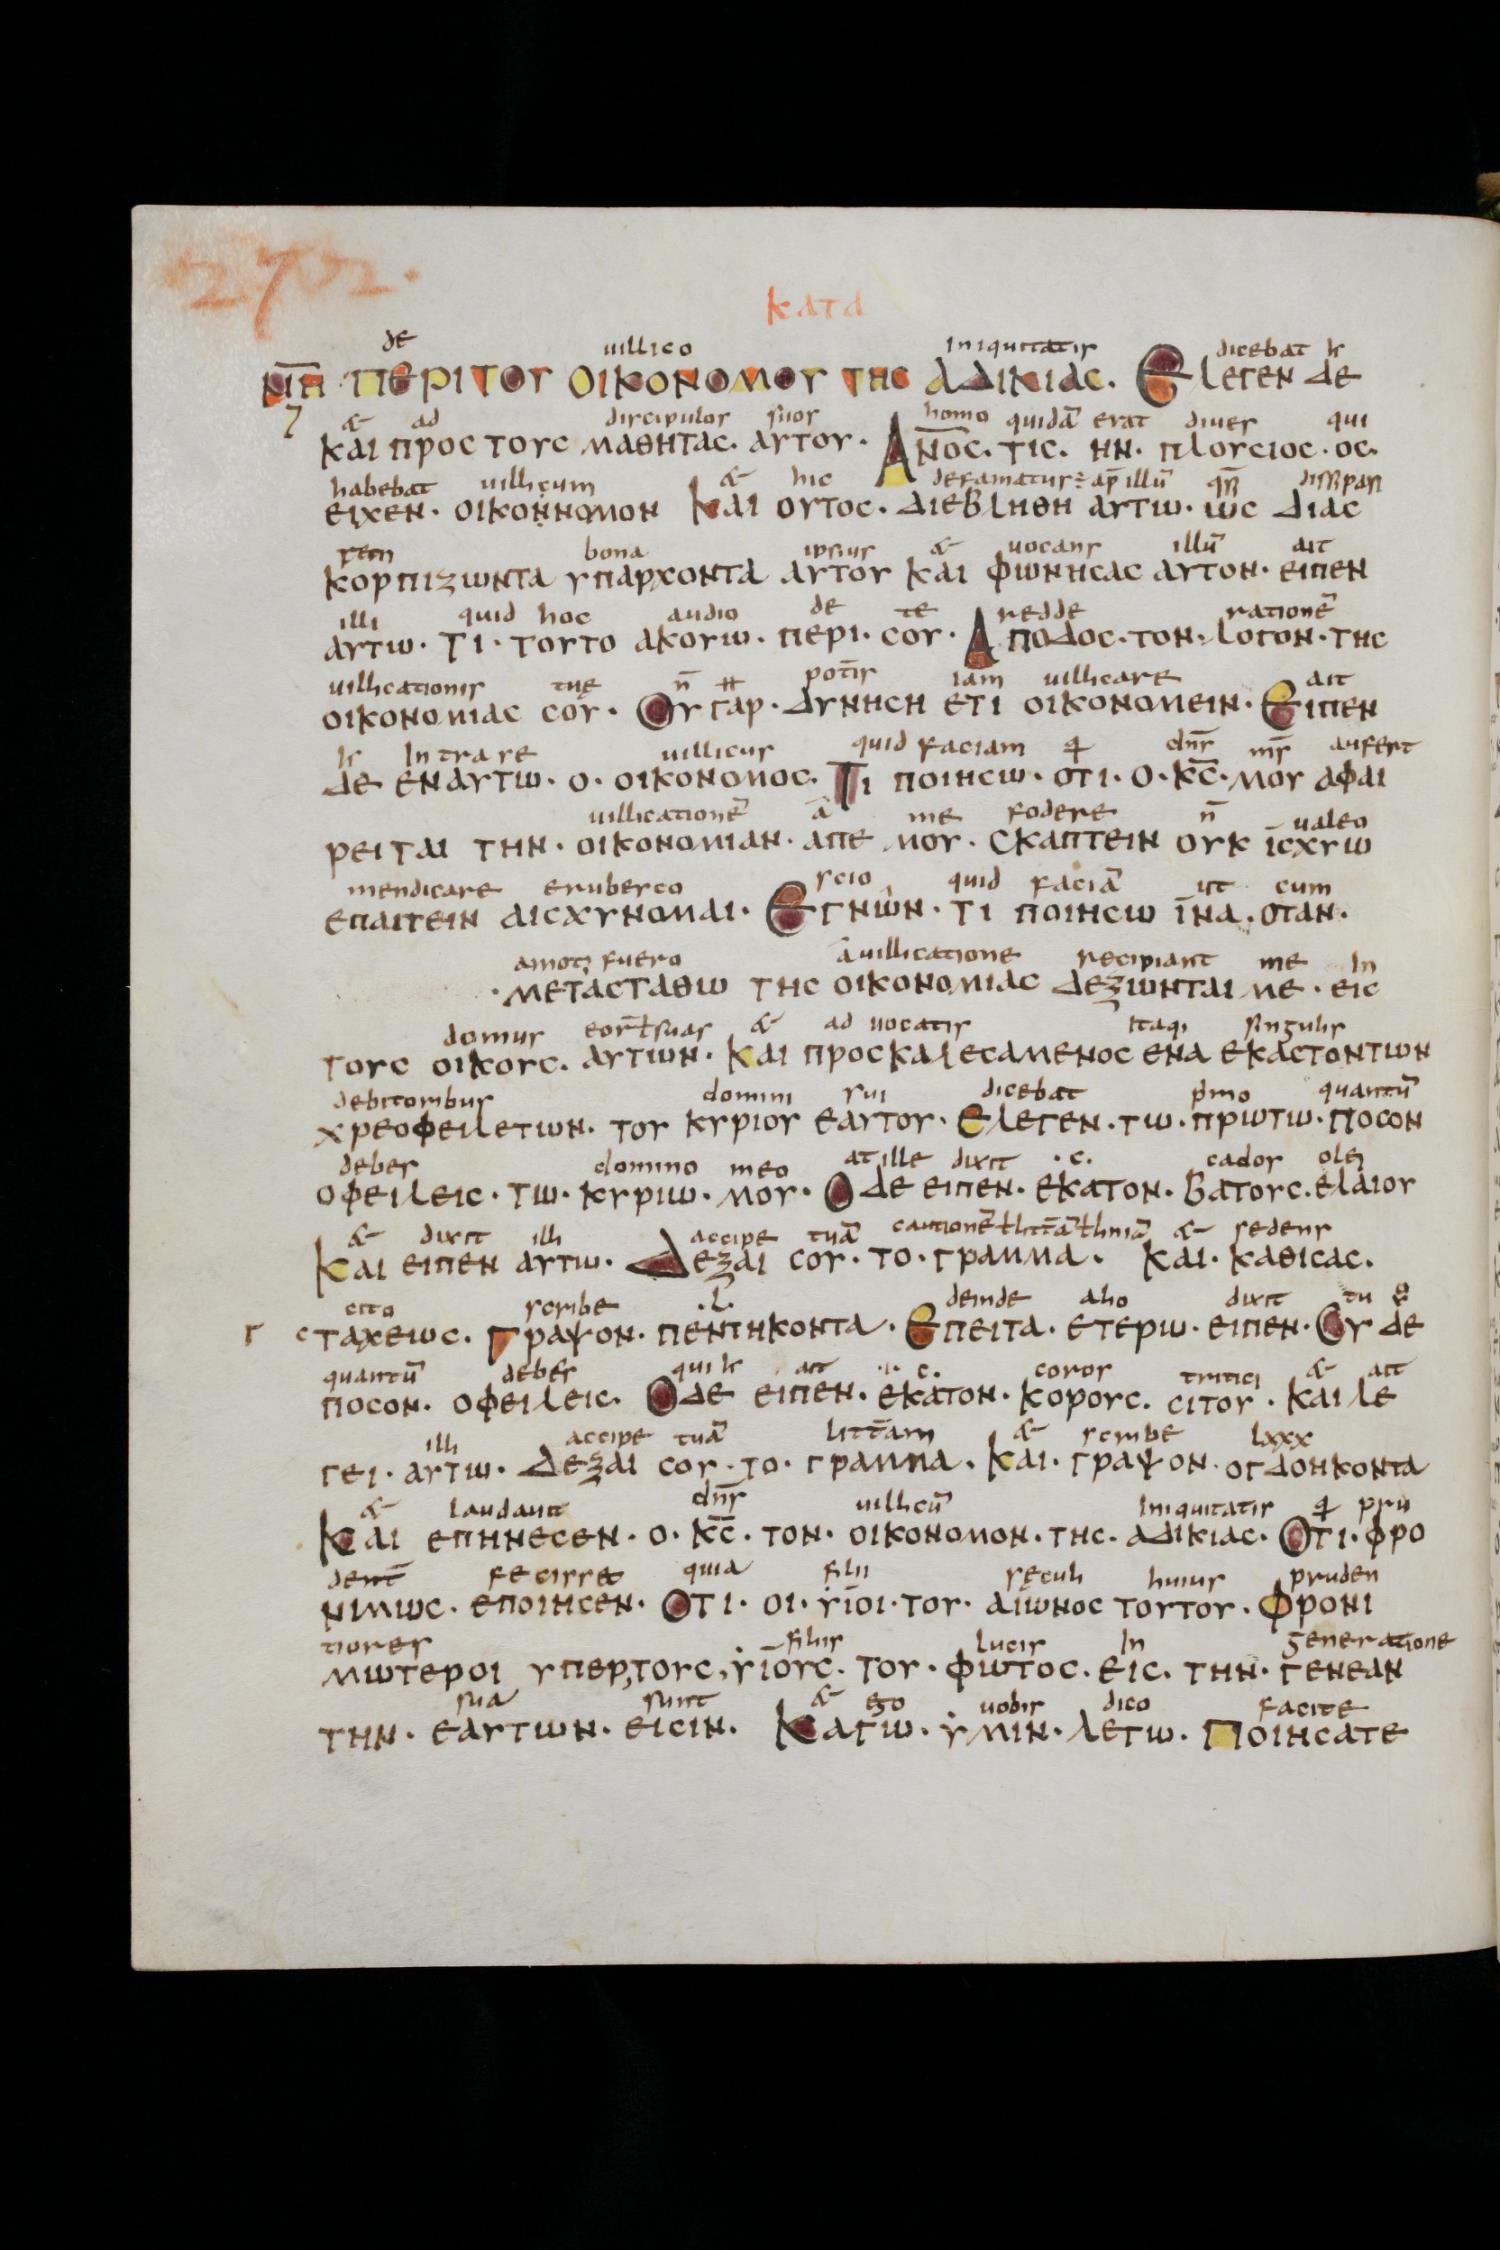 272.
κατα
de uillico iniquitatis dicebat h
ΝΠ ΠΕΡΙ ΤΟΥ ΟΙΚΟΝΟΜΟΥ ΤΗС ΑΔΙΚΙΑС. ΕΛΕΓΕΝ ΔΕ
& ad discipulos suos homo quidā erat diues qui
ΚΑΙ ΠΡΟС ΤΟΥС ΜΑΘΗΤΑС. ΑΥΤΟΥ. ΑΝΟ̅С. ΤΙС. ΗΝ. ΠΛΟΥСΙΟС. ΟС.
habebat uillicum & hic defamatus: ap̄ illū
ΕΙΧΕΝ. ΟΙΚΟΝΝΟΜΟΝ ΚΑΙ ΟΥΤΟС. ΔΙΕΒΛΗΘΗ ΑΥΤΩ. ΩС ΔΙΑС
bona ipsius & uocans illū ait
ΚΟΡΠΙΖΩΝΤΑ ΥΠΑΡΧΟΝΤΑ ΑΥΤΟΥ ΚΑΙ ΦΩΝΗСΑС ΑΥΤΟΝ. ΕΙΠΕΝ
illi quid hoc audio de te redde rationē
ΑΥΤΩ. ΤΙ. ΤΟΥΤΟ ΑΚΟΥΩ. ΠΕΡΙ. СΟΥ. ΑΠΟΔΟС. ΤΟΝ. ΛΟΓΟΝ. ΤΗС
uillicationis tuę n̄ pot̄is iam uillicare ait
ΟΙΚΟΝΟΜΙΑС СΟΥ. ΟΥ ΓΑΡ. ΔΥΝΗСΗ ΕΤΙ ΟΙΚΟΝΟΜΕΙΝ. ΕΙΠΕΝ
h intra se uillicus quid faciam dn̄s m̄s aufert
ΔΕ ΕΝΑΥΤΩ. Ο. ΟΙΚΟΝΟΜΟС. ΤΙ ΠΟΙΗСΩ. ΟΤΙ. Ο. ΚС̅. ΜΟΥ ΑΦΑΙ
uillicationē ā me fodere n̄ ualeo
ΡΕΙΤΑΙ ΤΗΝ. ΟΙΚΟΝΟΜΙΑΝ. ΑΠΕ ΜΟΥ. СΚΑΠΤΕΙΝ ΟΥΚ ΙСΧΥΩ
mendicare erubesco scio quid faciā ut cum
ΕΠΑΙΤΕΙΝ ΑΙСΧΥΝΟΜΑΙ. ΕΓΝΩΝ. ΤΙ ΠΟΙΗСΩ ΙΝΑ. ΟΤΑΝ.
amot; fuero ā uillicatione recipiant me In
.ΜΕΤΑСΤΑΘΩ ΤΗС ΟΙΚΟΝΟΜΙΑС ΔΕΞΩΝΤΑΙ ΜΕ. ΕΙС
domus eor̄ ł suas & ad uocatis Itaq; singulis
ΤΟΥС ΟΙΚΟΥС. ΑΥΤΩΝ. ΚΑΙ ΠΡΟСΚΑΛΕСΑΜΕΝΟС ΕΝΑ ΕΚΑСΤΟΝ ΤΩΝ
debitoribus domini sui dicebat p̄mo quantū
ΧΡΕΟΦΕΙΛΕΤΩΝ. ΤΟΥ ΚΥΡΙΟΥ ΕΑΥΤΟΥ. ΕΛΕΓΕΝ. ΤΩ. ΠΡΩΤΩ. ΠΟСΟΝ
debes domino meo at ille dixit .c. cados olei
ΟΦΕΙΛΕΙС. ΤΩ. ΚΥΡΙΩ. ΜΟΥ. Ο ΔΕ ΕΙΠΕΝ. ΕΚΑΤΟΝ. ΒΑΤΟΥС. ΕΛΑΙΟΥ
& dixit illi accipe tuā cautionē & sedens
ΚΑΙ ΕΙΠΕΝ ΑΥΤΩ. ΔΕΞΑΙ СΟΥ. ΤΟ. ΓΡΑΜΜΑ. ΚΑΙ. ΚΑΘΙСΑС.
cito scribe .L. deinde alio dixit tu
Γ СΤΑΧΕΩС. ΓΡΑΨΟΝ. ΠΕΝΤΗΚΟΝΤΑ. ΕΠΕΙΤΑ. ΕΤΕΡΩ. ΕΙΠΕΝ. СΥ ΔΕ
quantū debes qui h ait c. coros tritici & ait
ΠΟСΟΝ. ΟΦΕΙΛΕΙС. Ο ΔΕ ΕΙΠΕΝ. ΕΚΑΤΟΝ. ΚΟΡΟΥС. СΙΤΟΥ. ΚΑΙ ΛΕ
illi accipe tuā litt̄am & scribe lxxx
ΓΕΙ. ΑΥΤΩ. ΔΕΞΑΙ СΟΥ. ΤΟ. ΓΡΑΜΜΑ. ΚΑΙ. ΓΡΑΨΟΝ. ΟΓΔΟΗΚΟΝΤΑ
& laudauit dn̄s uillicū Iniquitatis pru
ΚΑΙ ΕΠΗΝΕСΕΝ. Ο. ΚС̅. ΤΟΝ. ΟΙΚΟΝΟΜΟΝ. ΤΗС. ΑΔΙΚΙΑС. ΟΤΙ. ΦΡΟ
dent̄ fecisset quia filii sęculi huius pruden
ΝΙΜΩС. ΕΠΟΙΗСΕΝ. ΟΤΙ. ΟΙ. ΥΙΟΙ. ΤΟΥ. ΑΙΩΝΟС ΤΟΥΤΟΥ. ΦΡΟΝΙ
tiores filiis lucis In generatione
ΜΩΤΕΡΟΙ ΥΠΕΡ, ΤΟΥС, ΥΙΟΥС. ΤΟΥ. ΦΩΤΟС. ΕΙС. ΤΗΝ. ΓΕΝΕΑΝ
sua sunt & ego uobis dico facite
ΤΗΝ. ΕΑΥΤΩΝ. ΕΙСΙΝ. ΚΑΓΩ. ΥΜΙΝ. ΛΕΓΩ. ΠΟΙΗСΑΤΕ